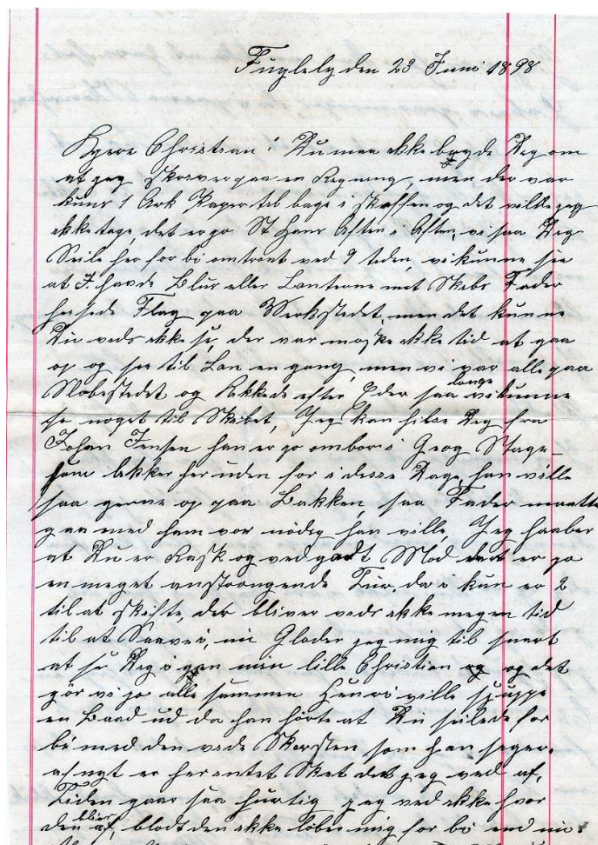 Fuglely den 23 Juni 1898
Kjere Christian! Du maa ikke bryde Deg om
at jeg skriver paa en Regning, men der var
kuns 1 Ark Papir tilbage i skuffen og det vilde jeg
ikke tage, det er jo St Hans Aften i Aften, vi saa Deg
Seile her for bi omtrent ved 9 tiden, vi kunne see
at I havde Blus eller Lanterne mit Skib Fader
heisede Flag paa Verkstedet, men det kunne
Du vads ikke se, der var maske ikke tid at gaa
op og see til Lan en gang, men vi var alle paa
og kikkede efter Eder saa lange vi kunne
se noget til Skibet, Jeg kan hilse Deg fra
Johan Jensen han er jo ombor i Georg Stage
som likker her uden for i disse Dage, han ville
saa gerne op paa Bakken saa Fader maatte
gaa med ham vor nödig han ville, Jeg haaber
at Du er Rask og ved godt Mod det er jo
en meget anstrængende Tur, da i kun er 2
til at skifte, der bliver vads ikke megen tid
til at Saave i, nu Glader jeg mig til snart
at se Deg i gen min lille Christian og det
gör vi jo alle sammen ville
en Baad ud da han hörte at Du seilede for
bi med den vade Skorsten som han seger.
af nyt er her entet Sket det jeg ved af,
Tiden gaar saa hurtig jeg ved ikke hvor
den bliver af, blodt den ikke löber mig for bi end